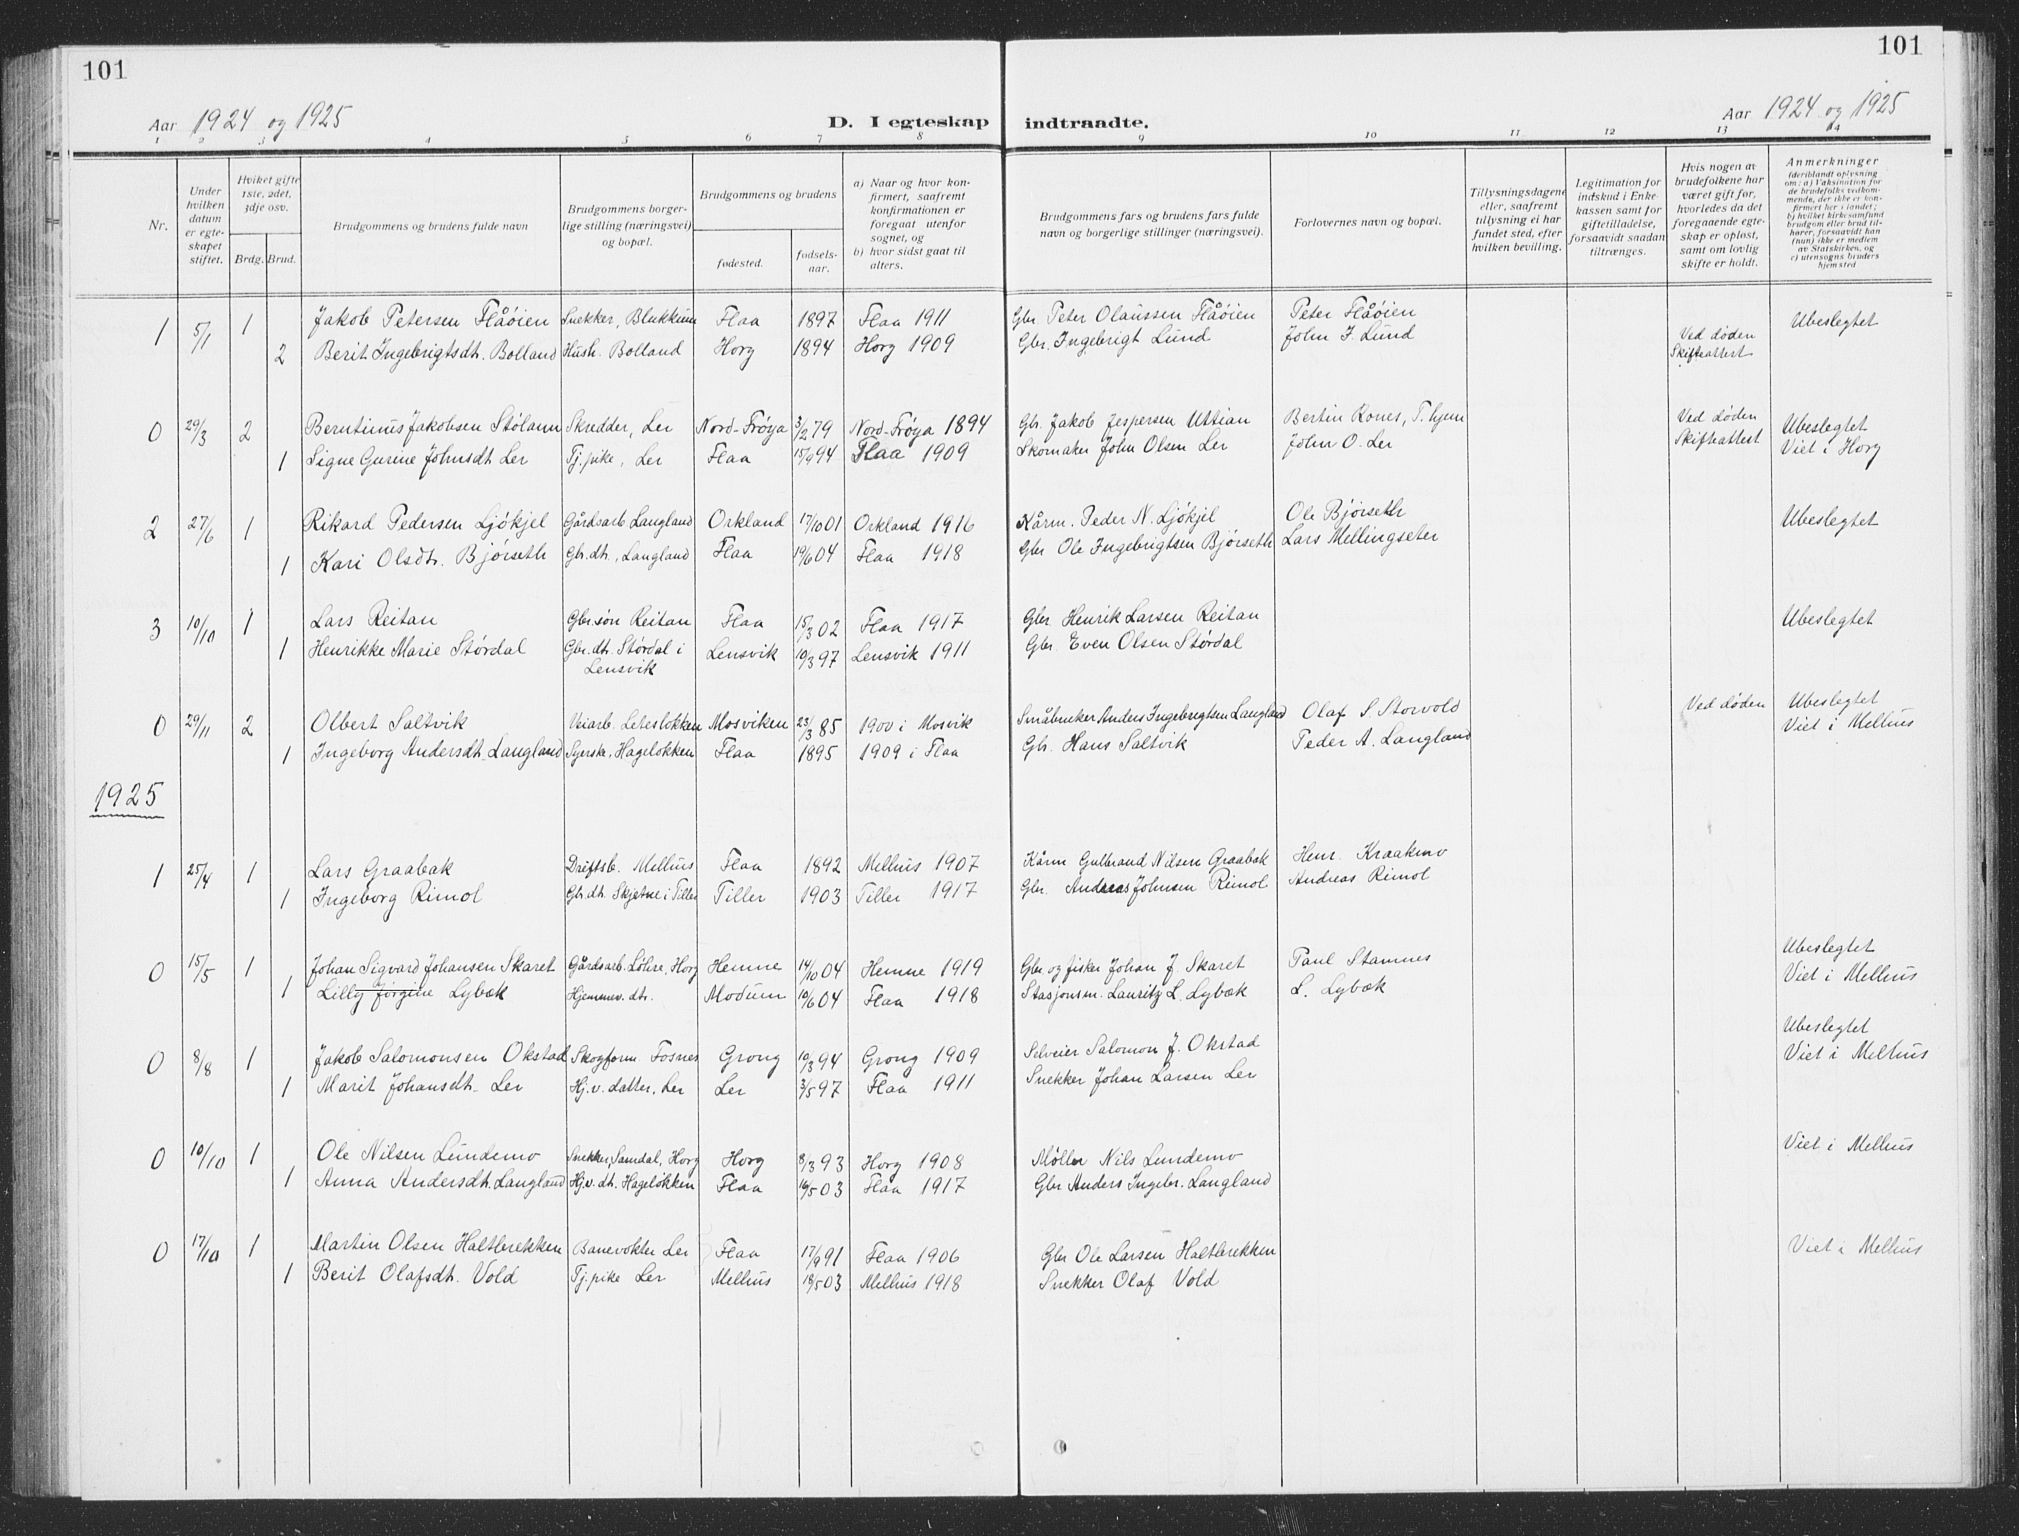 101
101
Aar 1924 og 1925
D. I egteskap indtraadte.
Aar 1924 og 1925
1 2 3 4 5 6 7 8 9 10 11 12 13 14
Nr.
Under hvilken datum er egteskapet stiftet.
Hviket gifte 1ste, 2det, 3dje osv.
Brdg. Brud.
Brudgommens og brudens fulde navn
Brudgommens borgerlige stilling (næringsvei) og bopæl.
Brudgommens og brudens
fødested.
fødselsaar.
a) Naar og hvor konfirmert, saafremt konfirmationen er foregaat utenfor sognet, og
b) hvor sidst gaat til alters.
Brudgommens fars og brudens fars fulde navn og borgerlige stillinger (næringsvei).
Forlovernes navn og bopæl.
Tillysningsdagene eller, saafremt tillysning ei har fundet sted, efter hvilken bevilling.
Legitimation for indskud i Enkekassen samt for giftetilladelse, forsaavidt saadan tiltrænges.
Hvis nogen av brudefolkene har været gift før, hvorledes da det foregaaende egteskap er opløst, samt om lovlig skifte er holdt.
Anmerkninger (deriblandt oplysning om: a) Vaksination for de brudefolks vedkommende, der ikke er konfirmert her i landet; b) hvilket kirkesamfund brudgom eller brud tilhører, forsaavidt han (hun) ikke er medlem av Statskirken, og c) utensogns bruders hjemsted
1 5/1 1 Jakob Petersen Flåøien Snekker, Blukkum Flaa 1897 Flaa 1911 Gbr. Peter Olaussen Flåøien Peter Flåøien Ubeslegtet
2 Berit Ingebrigtsdt. Bolland Hush. Bolland Horg 1894 Horg 1909 Gbr. Ingebrigt Lund John I. Lund Ved døden Skifteattest
0 29/3 2 Berntinus Jakobsen Stølann Skredder, Ler Nord-Frøya 3/2 79 Nord-Frøya 1894 Gbr. Jakob Jespersen Uttian Bertin Rones, T.hjem Ved døden Skifteattest Ubeslegtet
1 Signe Gurine Johnsdt Ler Tj.pike, Ler Flaa 15/9 94 Flaa 1909 Skomaker John Olsen Ler John O. Ler Viet i Horg
2 27/6 1 Rikard Pedersen Ljøkjel Gårdsarb. Langland Orkland 17/10 01 Orkland 1916 Kårm. Peder N. Ljøkjel Ole Bjørseth Ubeslegtet
1 Kari Olsdt. Bjørseth Gbr. dt., Langland Flaa 19/6 04 Flaa 1918 Gbr Ole Ingebrigtsen Bjørseth Lars Mellingseter
3 10/10 1 Lars Reitan Gbr.søn Reitan Flaa 15/3 02 Flaa 1917 Gbr Henrik Larsen Reitan Ubeslegtet
1 Henrikke Marie Størdal Gbr. dt. Størdal i Lensvik Lensvik 10/3 97 Lensvik 1911 Gbr. Even Olsen Størdal
0 29/11 2 Olbert Saltvik Veiarb. Leteslökken Mosviken 23/3 85 1900 i Mosvik Småbruker Anders Ingebrigtsen Langland Olaf S. Storvold Ved døden Ubeslegtet
1 Ingeborg Andersdt. Langland Syerske, Hageløkken Flaa 1895 1909 i Flaa Gbr. Hans Saltvik Peder A. Langland Viet i Melhus
1925
1 25/4 1 Lars Graabak Driftsb. Melhus Flaa 1892 Melhus 1907 Kårm Gulbrand Nilsen Graabak Henr. Kraakmo
1 Ingeborg Rimol Gbr. dt. Skjetne i Tiller Tiller 1903 Tiller 1917 Gbr. Andreas Johnsen Rimol Andreas Rimol
0 15/5 1 Johan Sigvard Johansen Skaret Gårdsarb. Løhre, Horg Hemne 14/10 04 Hemne 1919 Gbr og fisker Johan J. Skaret Paul Stamnes Ubeslegtet
1 Lilly Jørgine Lybæk Hjemmev. dt. Modum 10/6 04 Flaa 1918 Stasjonsm. Lauritz L. Lybæk L. Lybæk Viet i Melhus
0 8/8 1 Jakob Salomonsen Okstad Skogform. Fosnes Grong 10/3 94 Grong 1909 Selveier Salomon J. Okstad Ubeslegtet
1 Marit Johansdt. Ler Hj.v. datter, Ler Ler 3/5 97 Flaa 1911 Snekker Johan Larsen Ler Viet i Melhus
0 10/10 1 Ole Nilsen Lundemo Snekker, Samdal, Horg Horg 8/3 93 Horg 1908 Møller Nils Lundemo Viet i Melhus
1 Anna Andersdt. Langland Hj.v. dt. Hageløkken Flaa 16/5 03 Flaa 1917 Gbr Anders Ingebr. Langland
0 17/10 1 Martin Olsen Haltbrekken Banevokter Ler Flaa 17/9 91 Flaa 1906 Gbr Ole Larsen Haltbrekken Viet i Melhus
1 Berit Olafsdt. Vold Tj.pike Ler Melhus 18/5 03 Melhus 1918 Snekker Olaf Vold